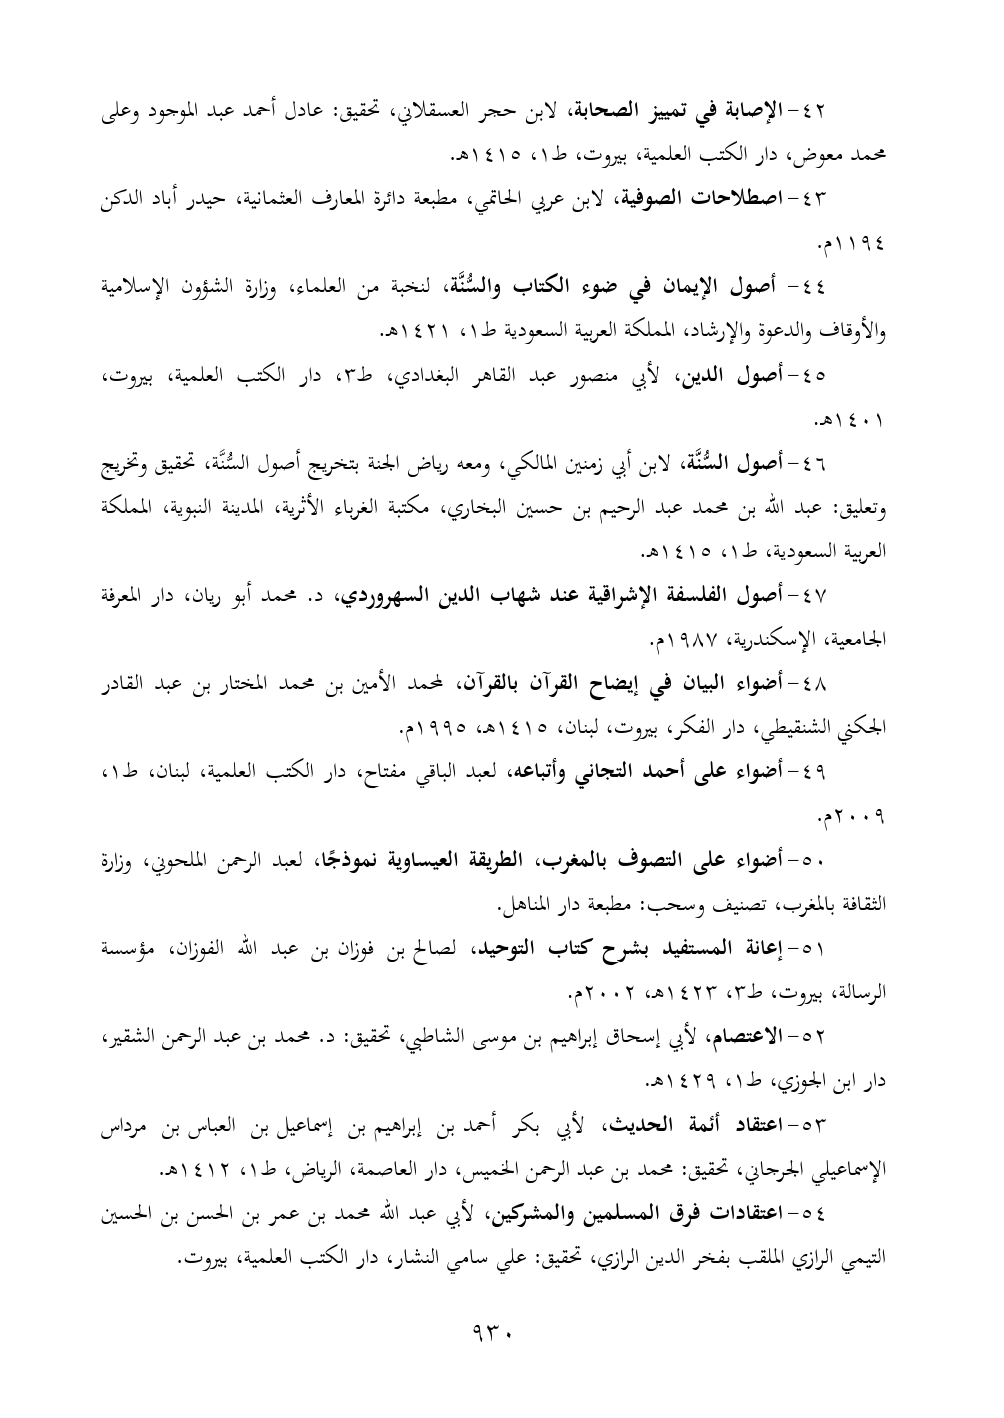 ٤٢- الإصابة في تمييز الصحابة، لابن حجر العسقلاني، تحقيق: عادل أحمد عبد الموجود وعلى
محمد معوض، دار الكتب العلمية، بيروت، ط١، ١٤١٥هـ.
٤٣- اصطلاحات الصوفية، لابن عربي الحاتمي، مطبعة دائرة المعارف العثمانية، حيدر أباد الدكن
١١٩٤م.
٤٤- أصول الإيمان في ضوء الكتاب والسُّنَّة، لنخبة من العلماء، وزارة الشؤون الإسلامية
والأوقاف والدعوة والإرشاد، المملكة العربية السعودية ط١، ١٤٢١هـ.
٤٥- أصول الدين، لأبي منصور عبد القاهر البغدادي، ط٣، دار الكتب العلمية، بيروت،
١٤٠١هـ.
٤٦- أصول السُّنَّة، لابن أبي زمنين المالكي، ومعه رياض الجنة بتخريج أصول السُّنَّة، تحقيق وتخريج
وتعليق: عبد الله بن محمد عبد الرحيم بن حسين البخاري، مكتبة الغرباء الأثرية، المدينة النبوية، المملكة
العربية السعودية، ط١، ١٤١٥هـ.
٤٧- أصول الفلسفة الإشراقية عند شهاب الدين السهروردي، د. محمد أبو ريان، دار المعرفة
الجامعية، الإسكندرية، ١٩٨٧م.
٤٨- أضواء البيان في إيضاح القرآن بالقرآن، لمحمد الأمين بن محمد المختار بن عبد القادر
الجكني الشنقيطي، دار الفكر، بيروت، لبنان، ١٤١٥هـ، ١٩٩٥م.
٤٩- أضواء على أحمد التجاني وأتباعه، لعبد الباقي مفتاح، دار الكتب العلمية، لبنان، ط١،
٢٠٠٩م.
٥٠- أضواء على التصوف بالمغرب، الطريقة العيساوية نموذجًا، لعبد الرحمن الملحوني، وزارة
الثقافة بالمغرب، تصنيف وسحب: مطبعة دار المناهل.
٥١- إعانة المستفيد بشرح كتاب التوحيد، لصالح بن فوزان بن عبد الله الفوزان، مؤسسة
الرسالة، بيروت، ط٣، ١٤٢٣هـ، ٢٠٠٢م.
٥٢- الاعتصام، لأبي إسحاق إبراهيم بن موسى الشاطبي، تحقيق: د. محمد بن عبد الرحمن الشقير،
دار ابن الجوزي، ط١، ١٤٢٩هـ.
٥٣- اعتقاد أئمة الحديث، لأبي بكر أحمد بن إبراهيم بن إسماعيل بن العباس بن مرداس
الإسماعيلي الجرجاني، تحقيق: محمد بن عبد الرحمن الخميس، دار العاصمة، الرياض، ط١، ١٤١٢هـ.
٥٤- اعتقادات فرق المسلمين والمشركين، لأبي عبد الله محمد بن عمر بن الحسن بن الحسين
التيمي الرازي الملقب بفخر الدين الرازي، تحقيق: علي سامي النشار، دار الكتب العلمية، بيروت.
٩٣٠